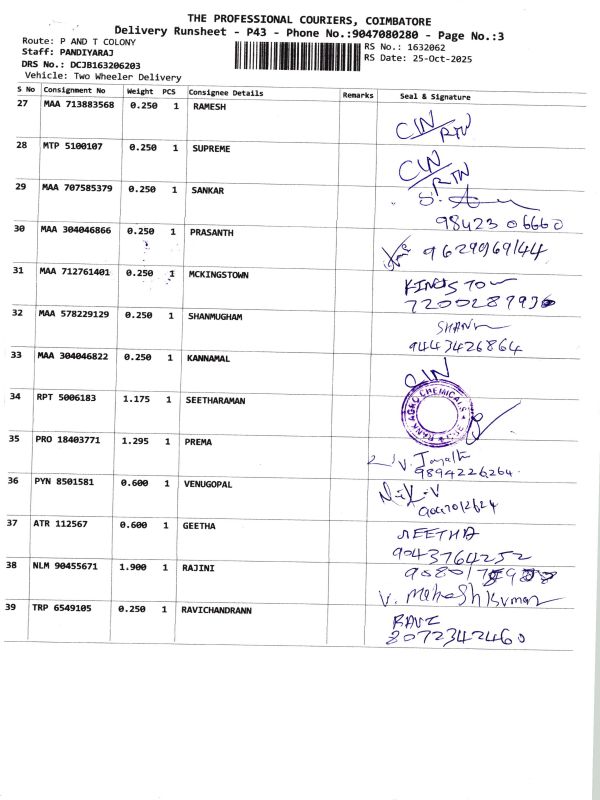 THE PROFESSIONAL COURIERS, COIMBATORE
Delivery Runsheet - P43 - Phone No.:9047080280 - Page No.:3
Route: P AND T COLONY
RS No.: 1632062
Staff: PANDIYARAJ
RS Date: 25-Oct-2025
DRS No.: DCJB163206203
Vehicle: Two Wheeler Delivery
S No Consignment No Weight PCS Consignee Details Remarks Seal & Signature
27 MAA 713883568 0.250 1 RAMESH
CIN/RTN
28 MTP 5100107 0.250 1 SUPREME
CIN/RTN
29 MAA 707585379 0.250 1 SANKAR
98423 06660
30 MAA 304046866 0.250 1 PRASANTH
9629969144
31 MAA 712761401 0.250 1 MCKINGSTOWN
KINGSTOW
32 MAA 578229129 0.250 1 SHANMUGHAM
SHAN
9443426864
33 MAA 304046822 0.250 1 KANNAMAL
CIN
34 RPT 5006183 1.175 1 SEETHARAMAN
AGRO CHEMICALS
CBE
35 PRO 18403771 1.295 1 PREMA
V. Jayalti
9894226264
36 PYN 8501581 0.600 1 VENUGOPAL
37 ATR 112567 0.600 1 GEETHA
9043764252
38 NLM 90455671 1.900 1 RAJINI
V. Maheshkumar
39 TRP 6549105 0.250 1 RAVICHANDRANN
RAVI
8072342460